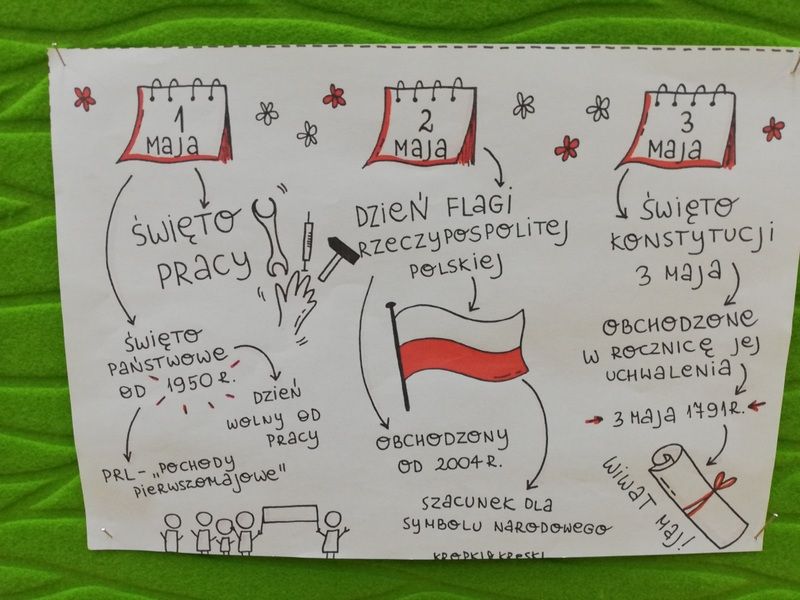 1
MAJA
ŚWIĘTO
PRACY
ŚWIĘTO
PAŃSTWOWE
OD 1950 R.
DZIEŃ
WOLNY OD
PRACY
PRL - „POCHODY
PIERWSZOMAJOWE"
2
MAJA
DZIEŃ FLAGI
RZECZYPOSPOLITEJ
POLSKIEJ
OBCHODZONY
OD 2004 R.
SZACUNEK DLA
SYMBOLU NARODOWEGO
KROPKI&KRESKI
3
MAJA
ŚWIĘTO
KONSTYTUCJI
3 MAJA
OBCHODZONE
W ROCZNICĘ JEJ
UCHWALENIA
3 MAJA 1791 R.
WIWAT MAJ!